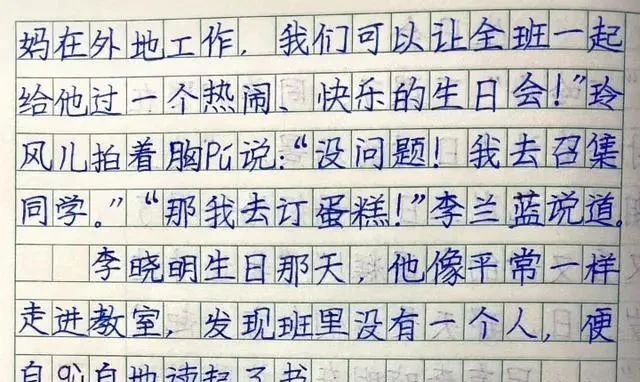 妈在外地工作，我们可以让全班一起
给他过一个热闹、快乐的生日会！”玲
风儿拍着胸Pú说：“没问题！我去召集
同学。”“那我去订蛋糕！”李兰蓝说道。
李晓明生日那天，他像平常一样
走进教室，发现班里没有一个人，便
自gǔ自地读起了书